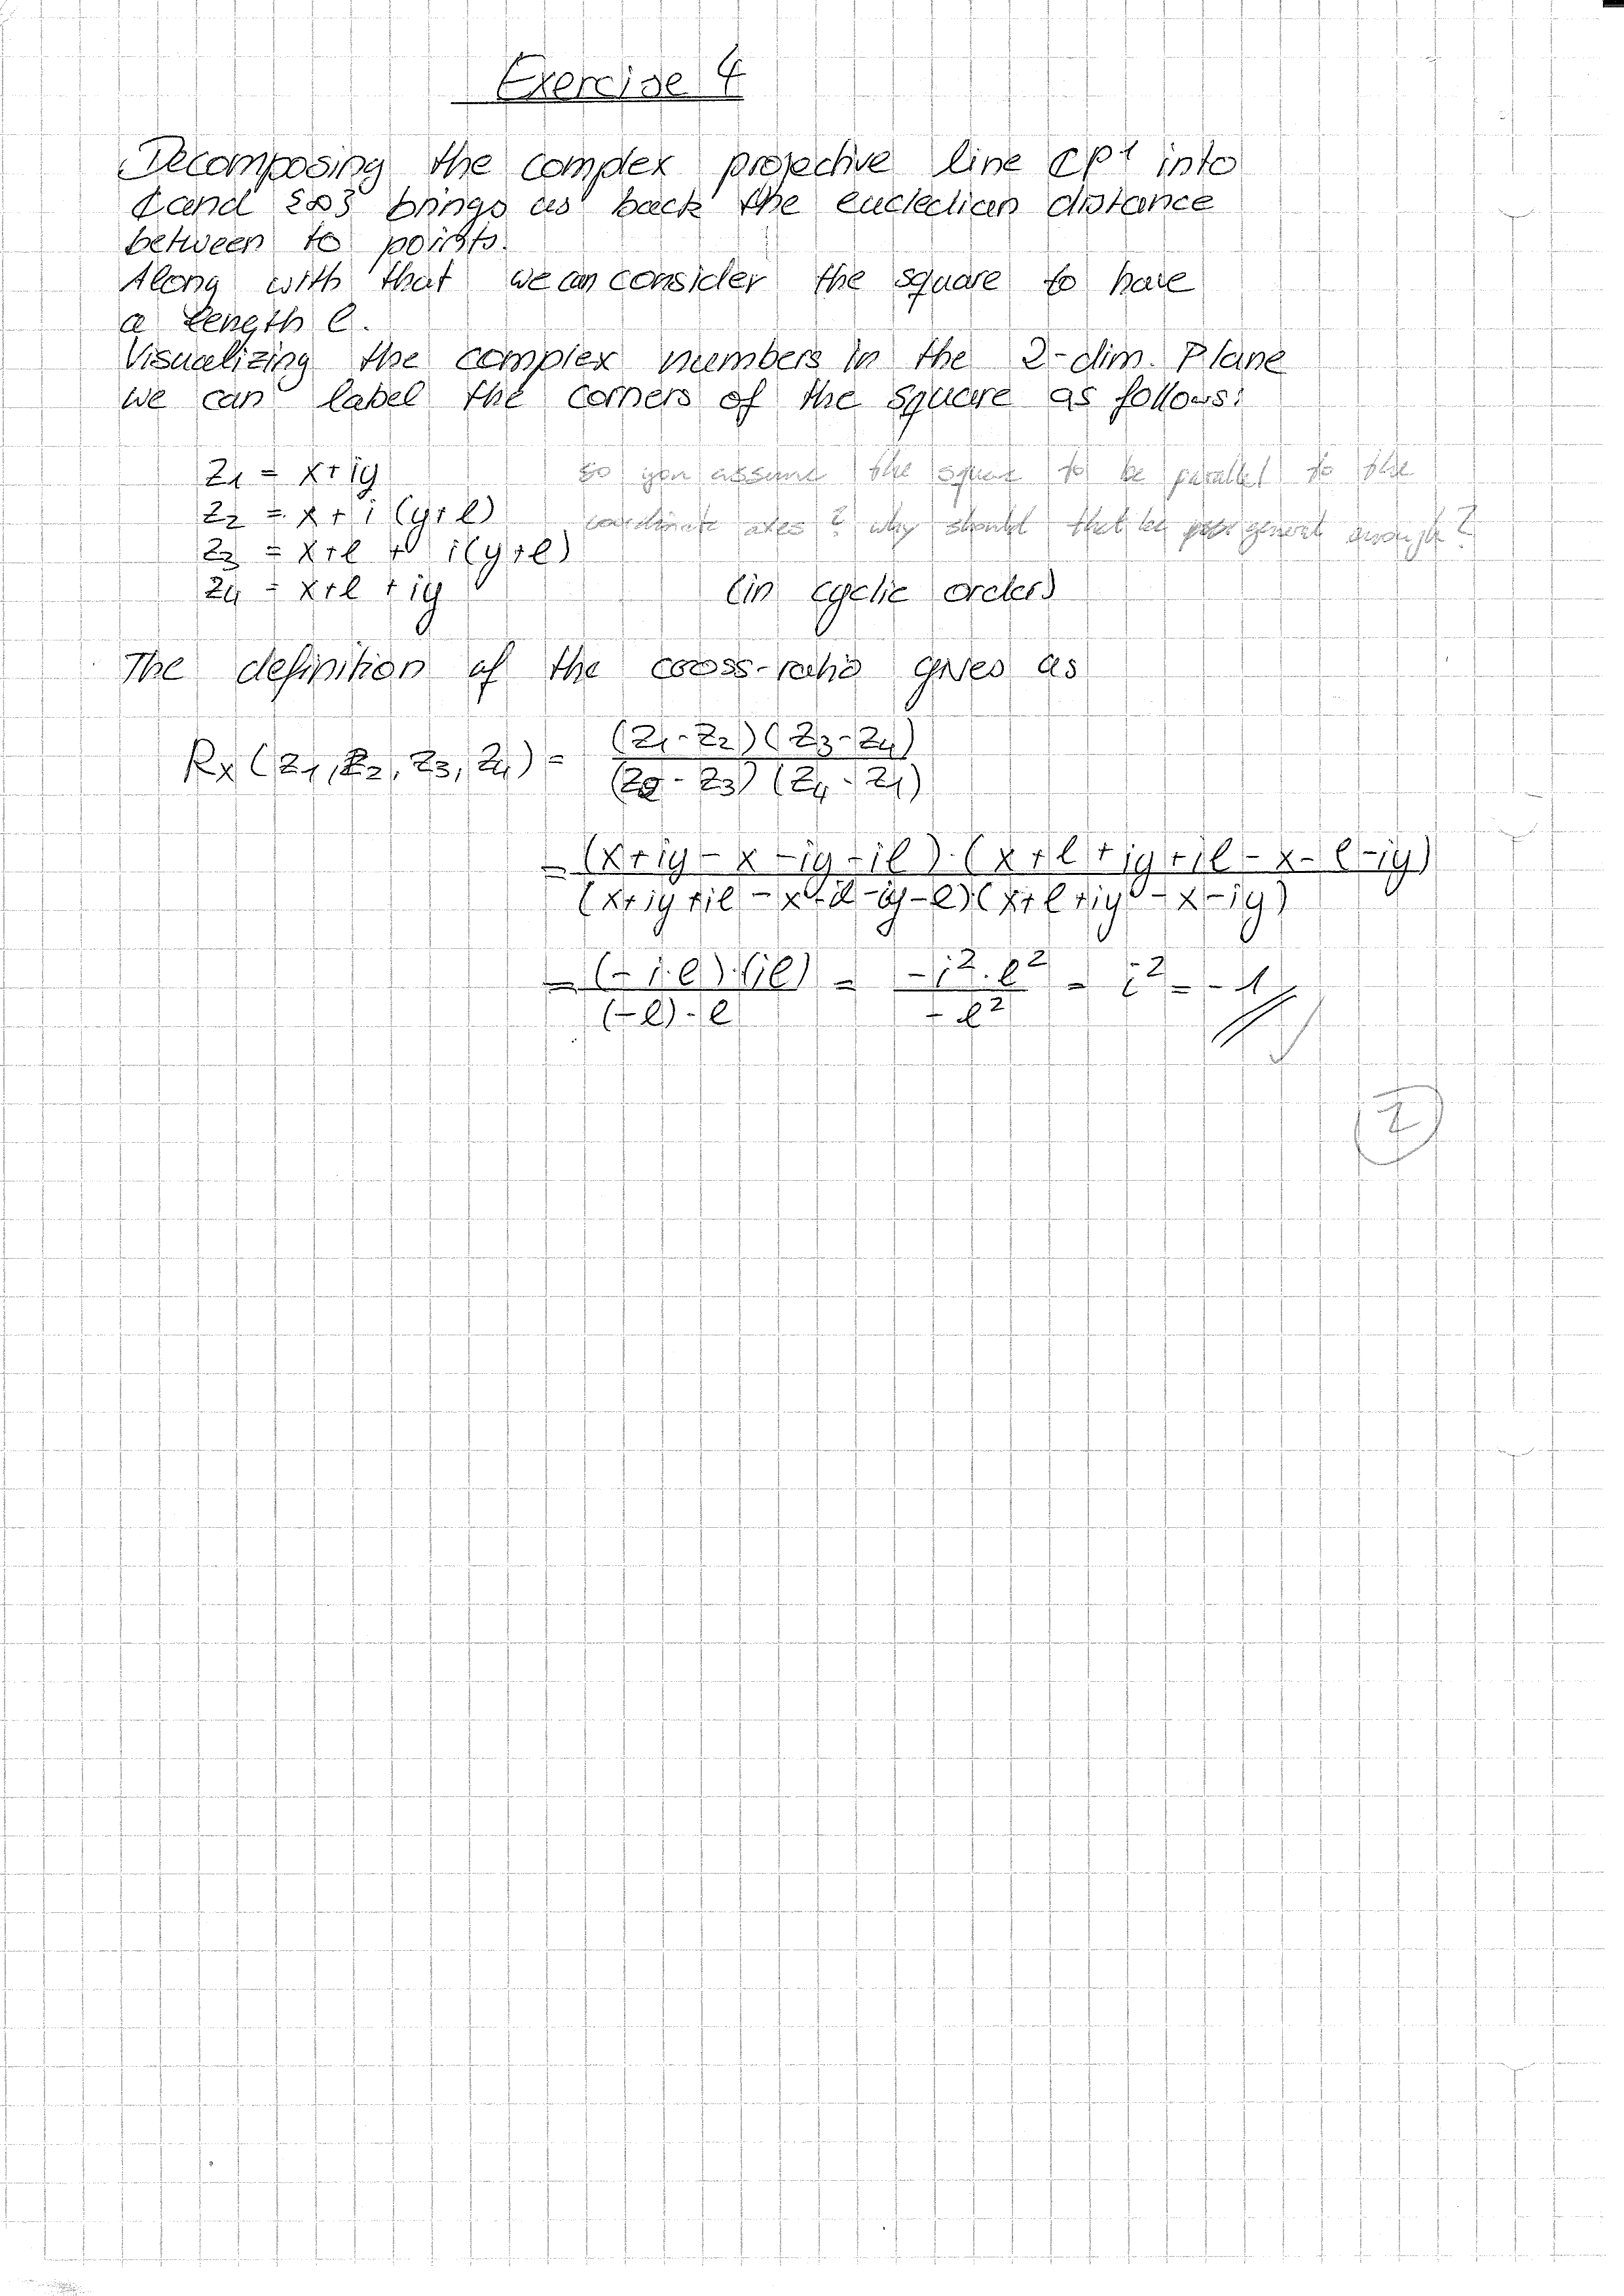 Exercise 4
Decomposing the complex projective line ℂP¹ into
ℂ and {∞} brings us back the eucledian distance
between to points.
Along with that we can consider the square to have
a length l.
Visualizing the complex numbers in the 2-dim. Plane
we can label the corners of the square as follows:
z₁ = x+iy
so you assume the square to be parallel to the
z₂ = x + i (y+l)
coordinate axes? why should that be general enough?
z₃ = x+l + i(y+l)
z₄ = x+l + iy (in cyclic order)
The definition of the cross-ratio gives as
Rx (z₁, z₂, z₃, z₄) = (z₁ - z₂) (z₃ - z₄) / (z₂ - z₃) (z₄ - z₁)
= (x+iy - x - iy - il) · (x+l+iy+il - x - l - iy) / (x+iy+il - x - il - iy - l) (x+l+iy - x - iy)
= (-i·l)·(il) / (-l)·l = -i²·l² / -l² = i² = -1
2